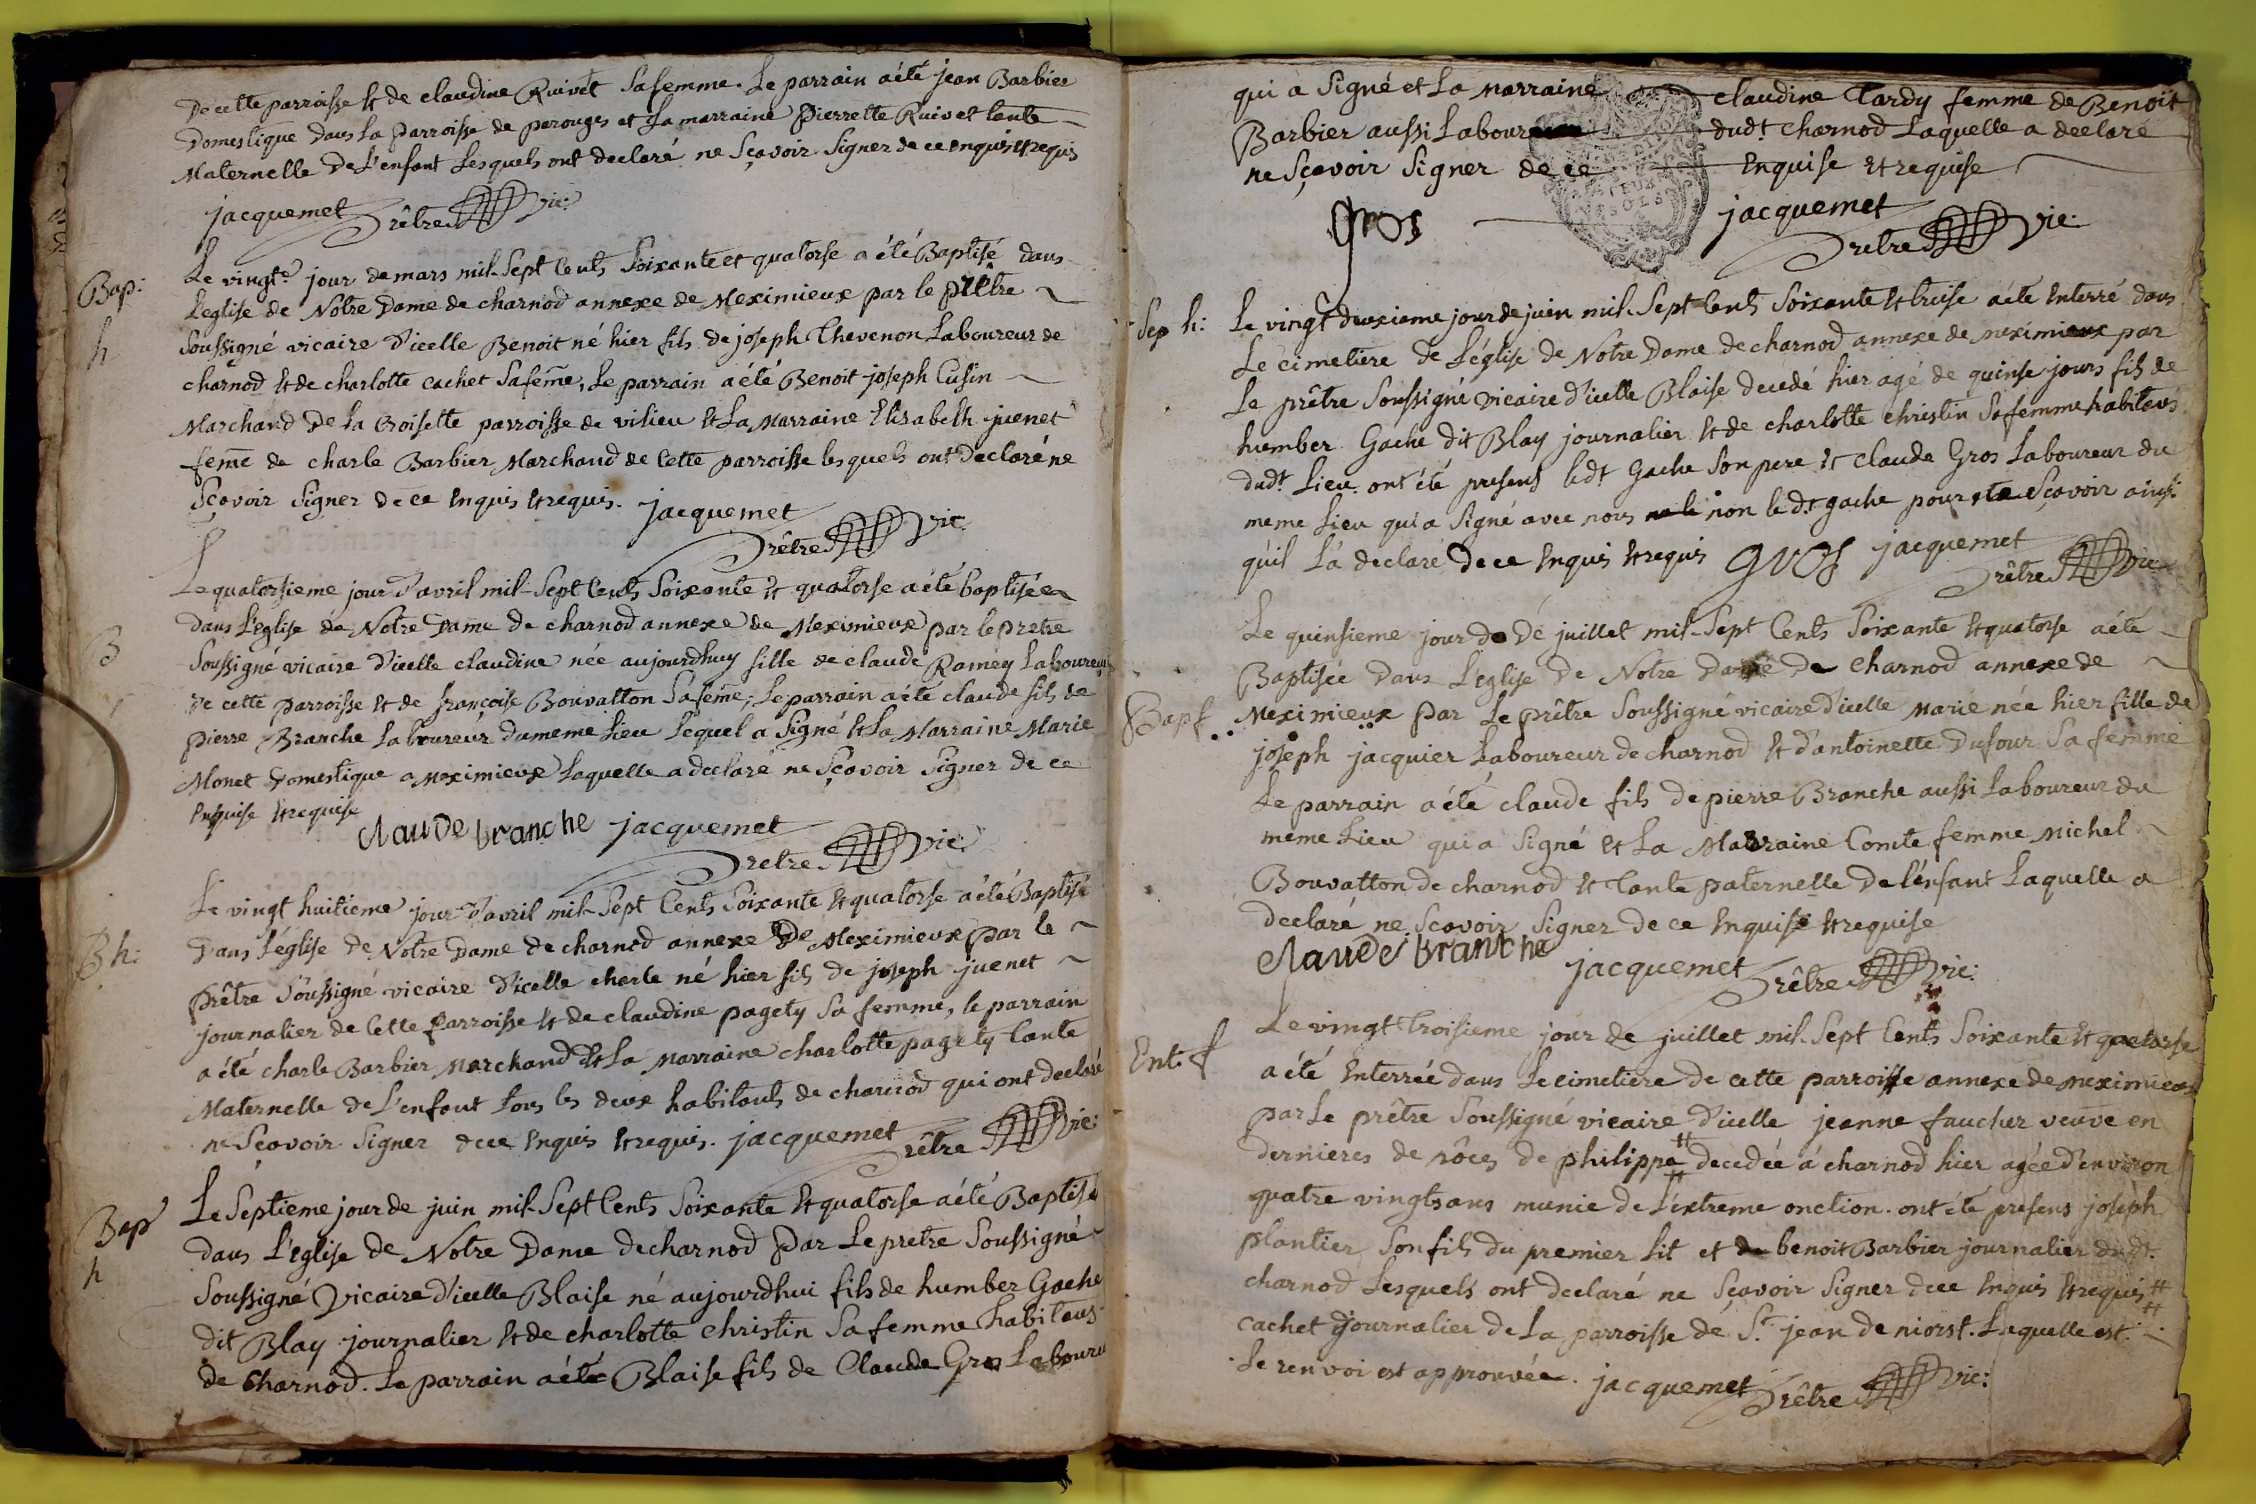 De cette parroisse et de claudine Ruivet Sa femme. Le parrain a été jean Barbier
Domestique dans La Parroisse de perouges et La marraine Pierrette Ruivet tente
Maternelle De L'enfant Lesquels ont declaré ne Sçavoir Signer de ce enquis et requis
jacquemet Prêtre Vic:
Bap:
h
Le vingt.e jour de mars mil Sept Cents Soixante et quatorse a été Baptisé dans
L'eglise de Notre Dame de charnod annexe de Meximieux par le prêtre
Soussigné vicaire d'icelle Benoit né hier fils de joseph Thevenon Laboureur de
charnod et de charlotte cachet Sa feme, Le parrain a été Benoit joseph Cusin
Marchand De La Croisette parroisse de vilieu et La Marraine Elisabeth juenet
feme de charle Barbier Marchand de Cette parroisse lesquels ont declaré ne
Sçavoir Signer de ce Enquis et requis. jacquemet
Prêtre Vic:
B
Le quatorsieme jour d'avril mil Sept Cents Soixante et quatorse a été baptisée
dans L'Eglise de Notre Dame de charnod annexe de Meximieux par le pretre
Soussigné vicaire d'icelle claudine née aujourdhuy fille de claude Ramey Laboureur
de cette parroisse et de françoise Bouvatton Sa feme; Le parrain a été claude fils de
pierre Branche Laboureur du meme Lieu Lequel a Signé et La Marraine Marie
Monet Domestique a Meximieux Laquelle a declaré ne Sçavoir Signer de ce
Enquise et requise
claude branche jacquemet
Pretre Vic:
B h:
Le vingt huitieme jour d'avril mil Sept Cents Soixante et quatorse a été Baptisé
Dans L'église de Notre Dame de charnod annexe De Meximieux par le
Prêtre Soussigné vicaire d'icelle charle né hier fils de joseph juenet
journalier de Cette Parroisse et de claudine pagety Sa femme, le parrain
a été charle Barbier Marchand et La Marraine charlotte pagety tante
Maternelle de L'enfant tous les deux habitants de charnod qui ont declaré
ne Sçavoir Signer de ce Enquis et requis. jacquemet
Prêtre Vic:
Bap
h
Le Septieme jour de juin mil Sept Cents Soixante et quatorse a été Baptisé
dans L'Eglise de Notre Dame de charnod Par Le pretre Soussigné
Soussigné Vicaire d'icelle Blaise né aujourdhui fils de humber Gache
dit Blay journalier et de charlotte christin Sa femme habitans
de Charnod. Le parrain a été Blaise fils de Claude Gros Laboureur
qui a Signé et La marraine claudine Tardy femme de Benoit
Barbier aussi Laboureur dudt charnod Laquelle a declaré
ne Sçavoir Signer de ce Enquise et requise
Gros jacquemet
Pretre Vic:
Sep h:
Le vingt deuxieme jour de juin mil Sept Cents Soixante et treise a été Enterré dans
Le cimetiere de L'église de Notre Dame de charnod annexe de meximieux par
Le prêtre Soussigné vicaire d'icelle Blaise decedé hier agé de quinse jours fils de
humber Gache dit Blay journalier et de charlotte christin Sa femme habitans
dudt Lieu. ont été presens ledt Gache Son pere et claude Gros Laboureur du
meme Lieu qui a Signé avec nous non ledt gache pour ne Sçavoir ainsi
qu'il L'a declaré de ce Enquis et requis Gros jacquemet
Prêtre Vic:
Le quinsieme jour de De juillet mil Sept Cents Soixante et quatorse a été
Baptisée dans L'eglise De Notre Dame De charnod annexe de
Bap f
Meximieux Par Le prêtre Soussigné vicaire d'icelle Marie née hier fille de
joseph jacquier Laboureur de charnod et d'antoinette Dufour Sa femme
Le parrain a été claude fils de pierre Branche aussi Laboureur du
meme Lieu qui a Signé et La Marraine Comte femme Michel
Bouvatton de charnod et tante paternelle De l'enfant Laquelle a
declaré ne Sçavoir Signer de ce Enquise et requise
claude branche
jacquemet Prêtre Vic:
Ent. f
Le vingt troisieme jour de juillet mil Sept Cents Soixante et quatorse
a été Enterrée dans Le cimetiere de cette parroisse annexe de meximieux
par Le prêtre Soussigné vicaire d'icelle jeanne faucher veuve en
dernieres de nôces de philippe # decedée á charnod hier agée d'environ
quatre vingts ans munie de L'extreme onction. ont été presens joseph
plantier Son fils du premier Lit et benoit Barbier journalier dudt.
charnod Lesquels ont declaré ne Sçavoir Signer de ce Enquis et requis #
cachet journalier de La parroisse de St. jean de niorst. Laquelle est
Le renvoi est approuvée. jacquemet Prêtre Vic: